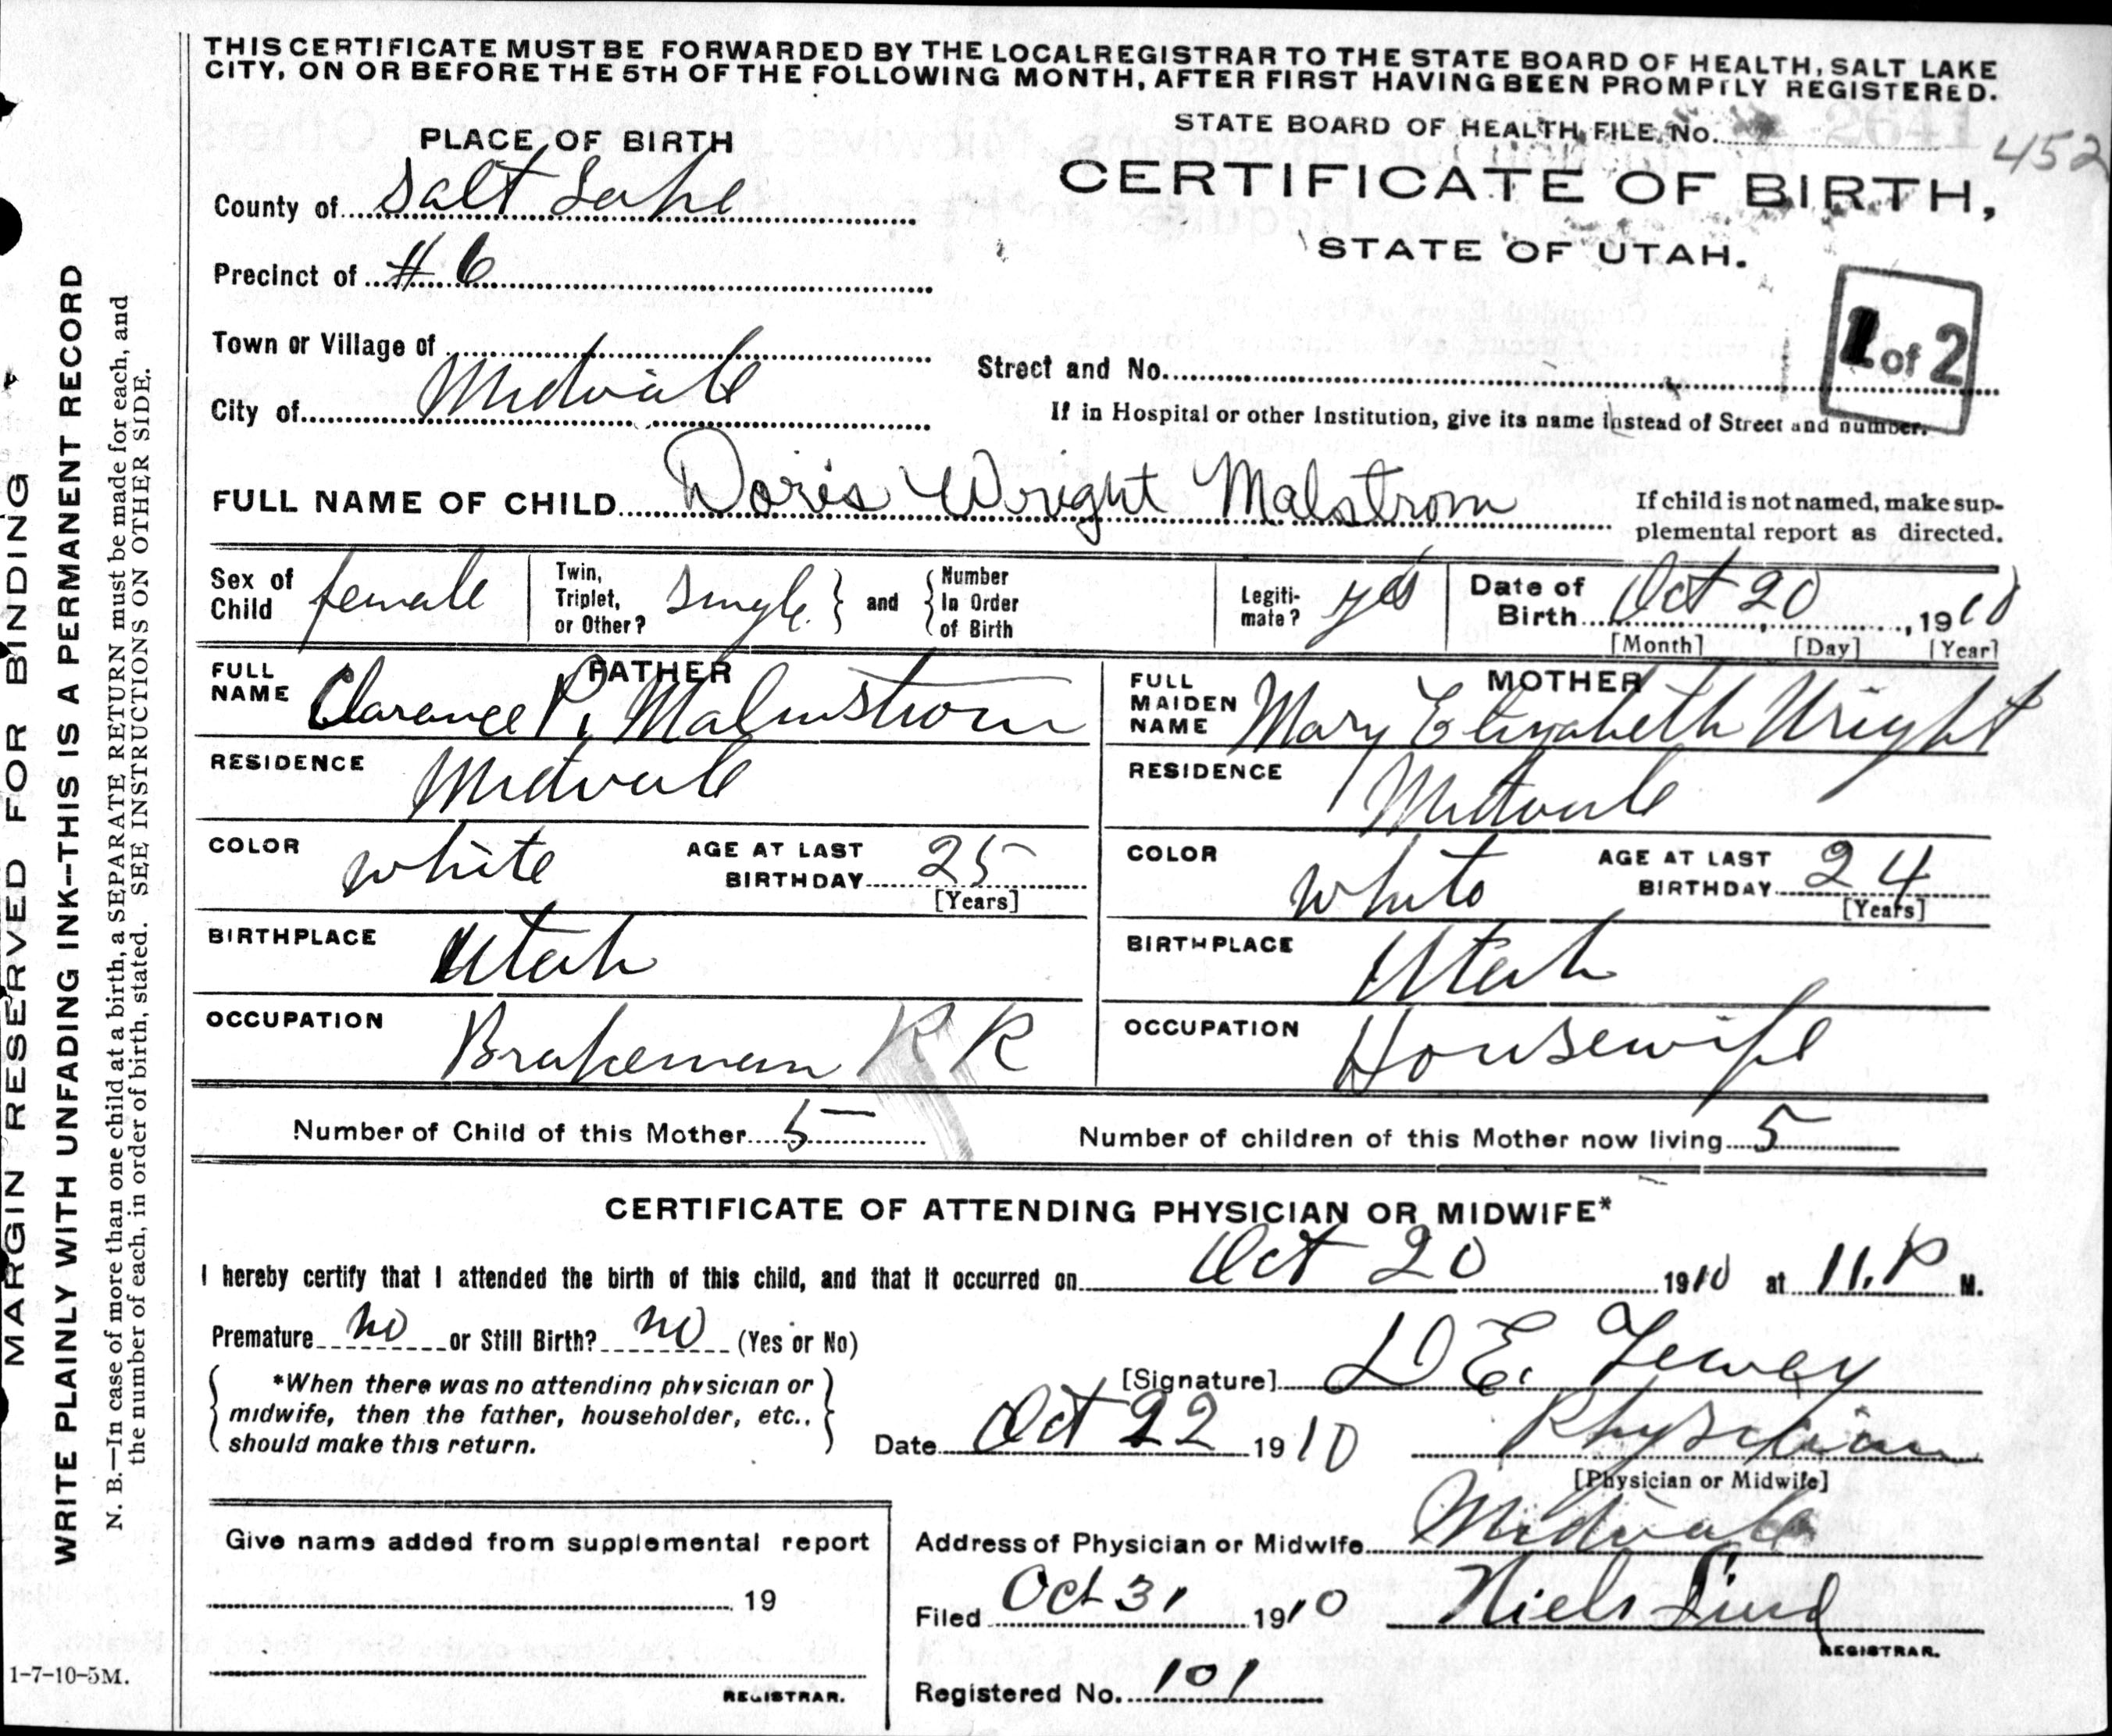 THIS CERTIFICATE MUST BE FORWARDED BY THE LOCAL REGISTRAR TO THE STATE BOARD OF HEALTH, SALT LAKE
CITY, ON OR BEFORE THE 5TH OF THE FOLLOWING MONTH, AFTER FIRST HAVING BEEN PROMPTLY REGISTERED.
STATE BOARD OF HEALTH FILE No. 452
PLACE OF BIRTH
CERTIFICATE OF BIRTH,
STATE OF UTAH.
County of Salt Lake
Precinct of # 6
1 of 2
Town or Village of
Midvale
Street and No.
City of
If in Hospital or other Institution, give its name instead of Street and number.
FULL NAME OF CHILD Doris Wright Malstrom
If child is not named, make sup-
plemental report as directed.
Sex of Child female
Twin, Triplet, or Other? Single and Number In Order of Birth
Legiti-mate? yes
Date of Birth Oct 20, 1910
[Month] [Day] [Year]
FATHER
FULL NAME Clarence P. Malmstrom
RESIDENCE Midvale
COLOR white AGE AT LAST BIRTHDAY 25
[Years]
BIRTHPLACE Utah
OCCUPATION Brakeman R R
MOTHER
FULL MAIDEN NAME Mary Elizabeth Wright
RESIDENCE Midvale
COLOR white AGE AT LAST BIRTHDAY 24
[Years]
BIRTHPLACE Utah
OCCUPATION Housewife
Number of Child of this Mother 5 Number of children of this Mother now living 5
CERTIFICATE OF ATTENDING PHYSICIAN OR MIDWIFE*
I hereby certify that I attended the birth of this child, and that it occurred on Oct 20 1910 at 11. P M.
Premature no or Still Birth? no (Yes or No)
*When there was no attending physician or
midwife, then the father, householder, etc.,
should make this return.
[Signature] D E.
Date Oct 22 1910 Physician
[Physician or Midwife]
Give name added from supplemental report
19
REGISTRAR.
Address of Physician or Midwife Midvale
Filed Oct 31 1910 Niels Lind
REGISTRAR.
Registered No. 101
1-7-10-5M.
MARGIN RESERVED FOR BINDING
WRITE PLAINLY WITH UNFADING INK--THIS IS A PERMANENT RECORD
N. B.—In case of more than one child at a birth, a SEPARATE RETURN must be made for each, and
the number of each, in order of birth, stated. SEE INSTRUCTIONS ON OTHER SIDE.